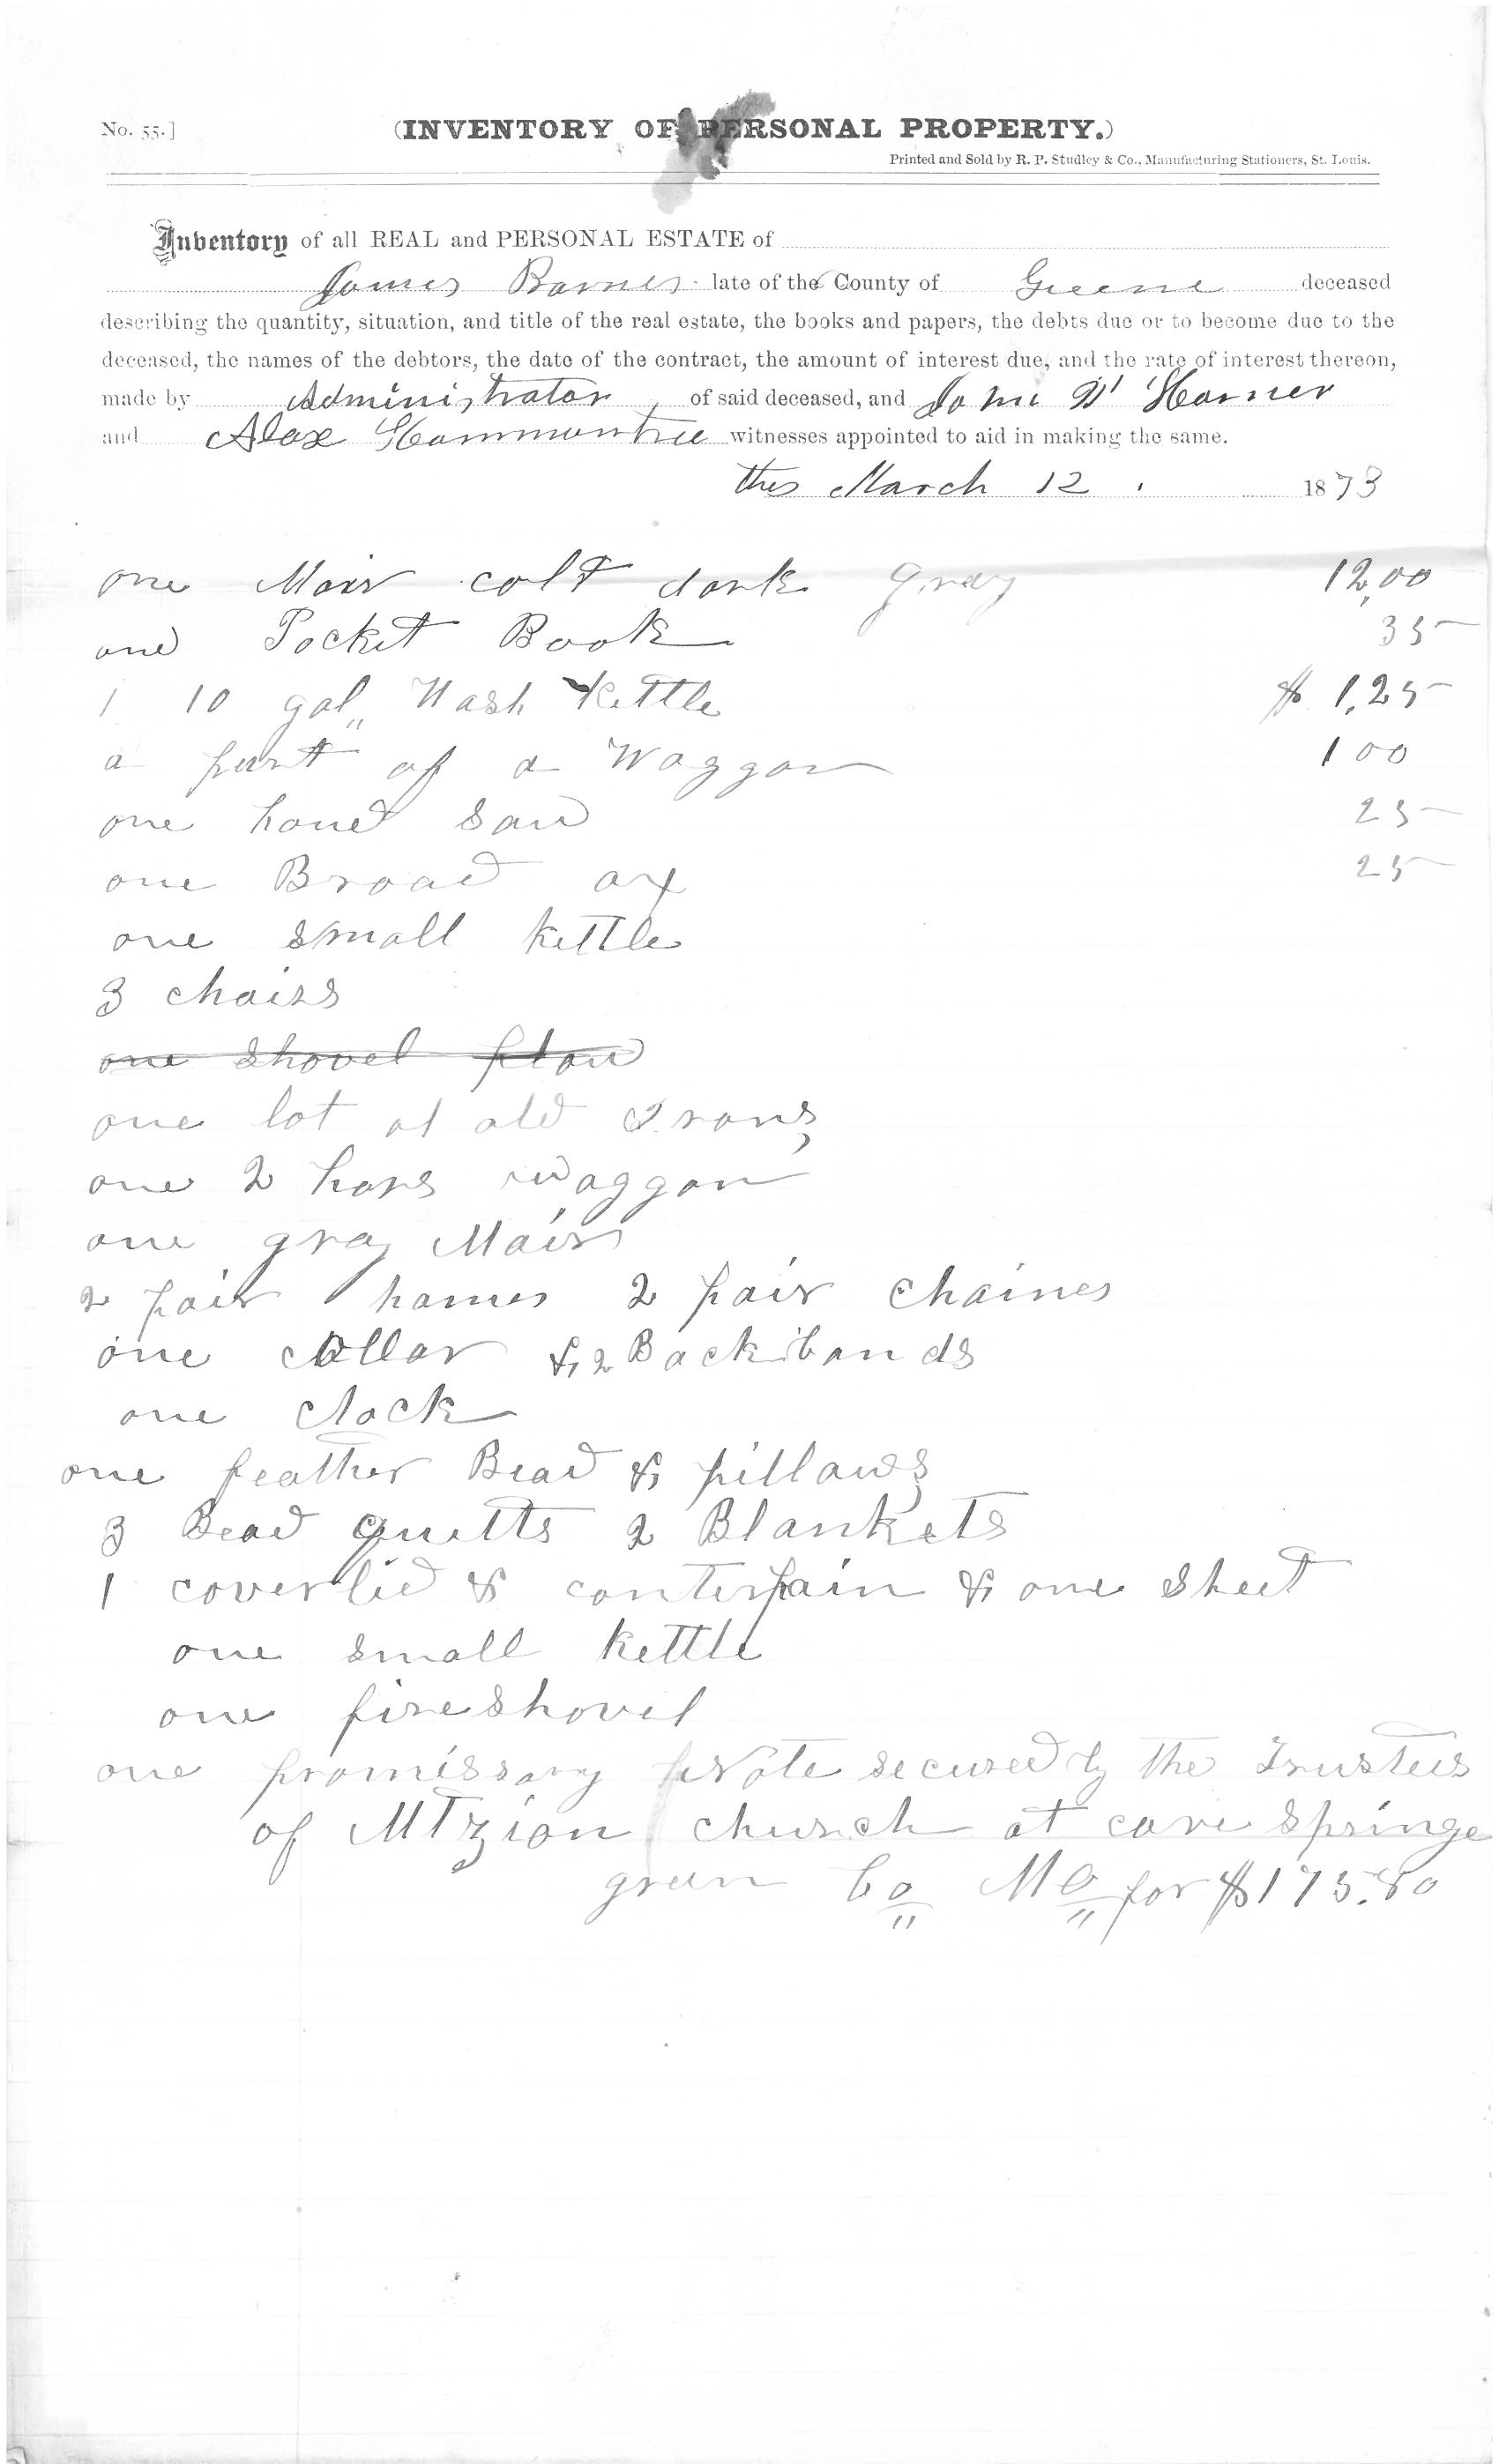 No. 55.]
(INVENTORY OF PERSONAL PROPERTY.)
Printed and Sold by R. P. Studley & Co., Manufacturing Stationers, St. Louis.
Inventory of all REAL and PERSONAL ESTATE of
James Barnes late of the County of Greene deceased
describing the quantity, situation, and title of the real estate, the books and papers, the debts due or to become due to the
deceased, the names of the debtors, the date of the contract, the amount of interest due, and the rate of interest thereon,
made by Administrator, of said deceased, and John W Harner
and Alax Hammontree witnesses appointed to aid in making the same.
this March 12. 1873
one Mair colt dark gray 12,00
one Pocket Book 35
1 10 gal,, Wash Kettle $ 1,25
a part of a Waggon 1 00
one hand saw 25
one Broad ax 25
one small kettle
3 chairs
one shovel plow
one lot of old Irons
one 2 hors waggon
one gray Mair
2 pair hames 2 pair chaines
one collar & 2 Backbands
one clock
one feather Bead & pillows
3 Bead quilts 2 Blankets
1 coverlid & conterpain & one sheet
one small kettle
one fireshovel
one promissary Note secured by the Trustees
of Mtzion church at cave springe
green Co,, Mo,, for $175.80